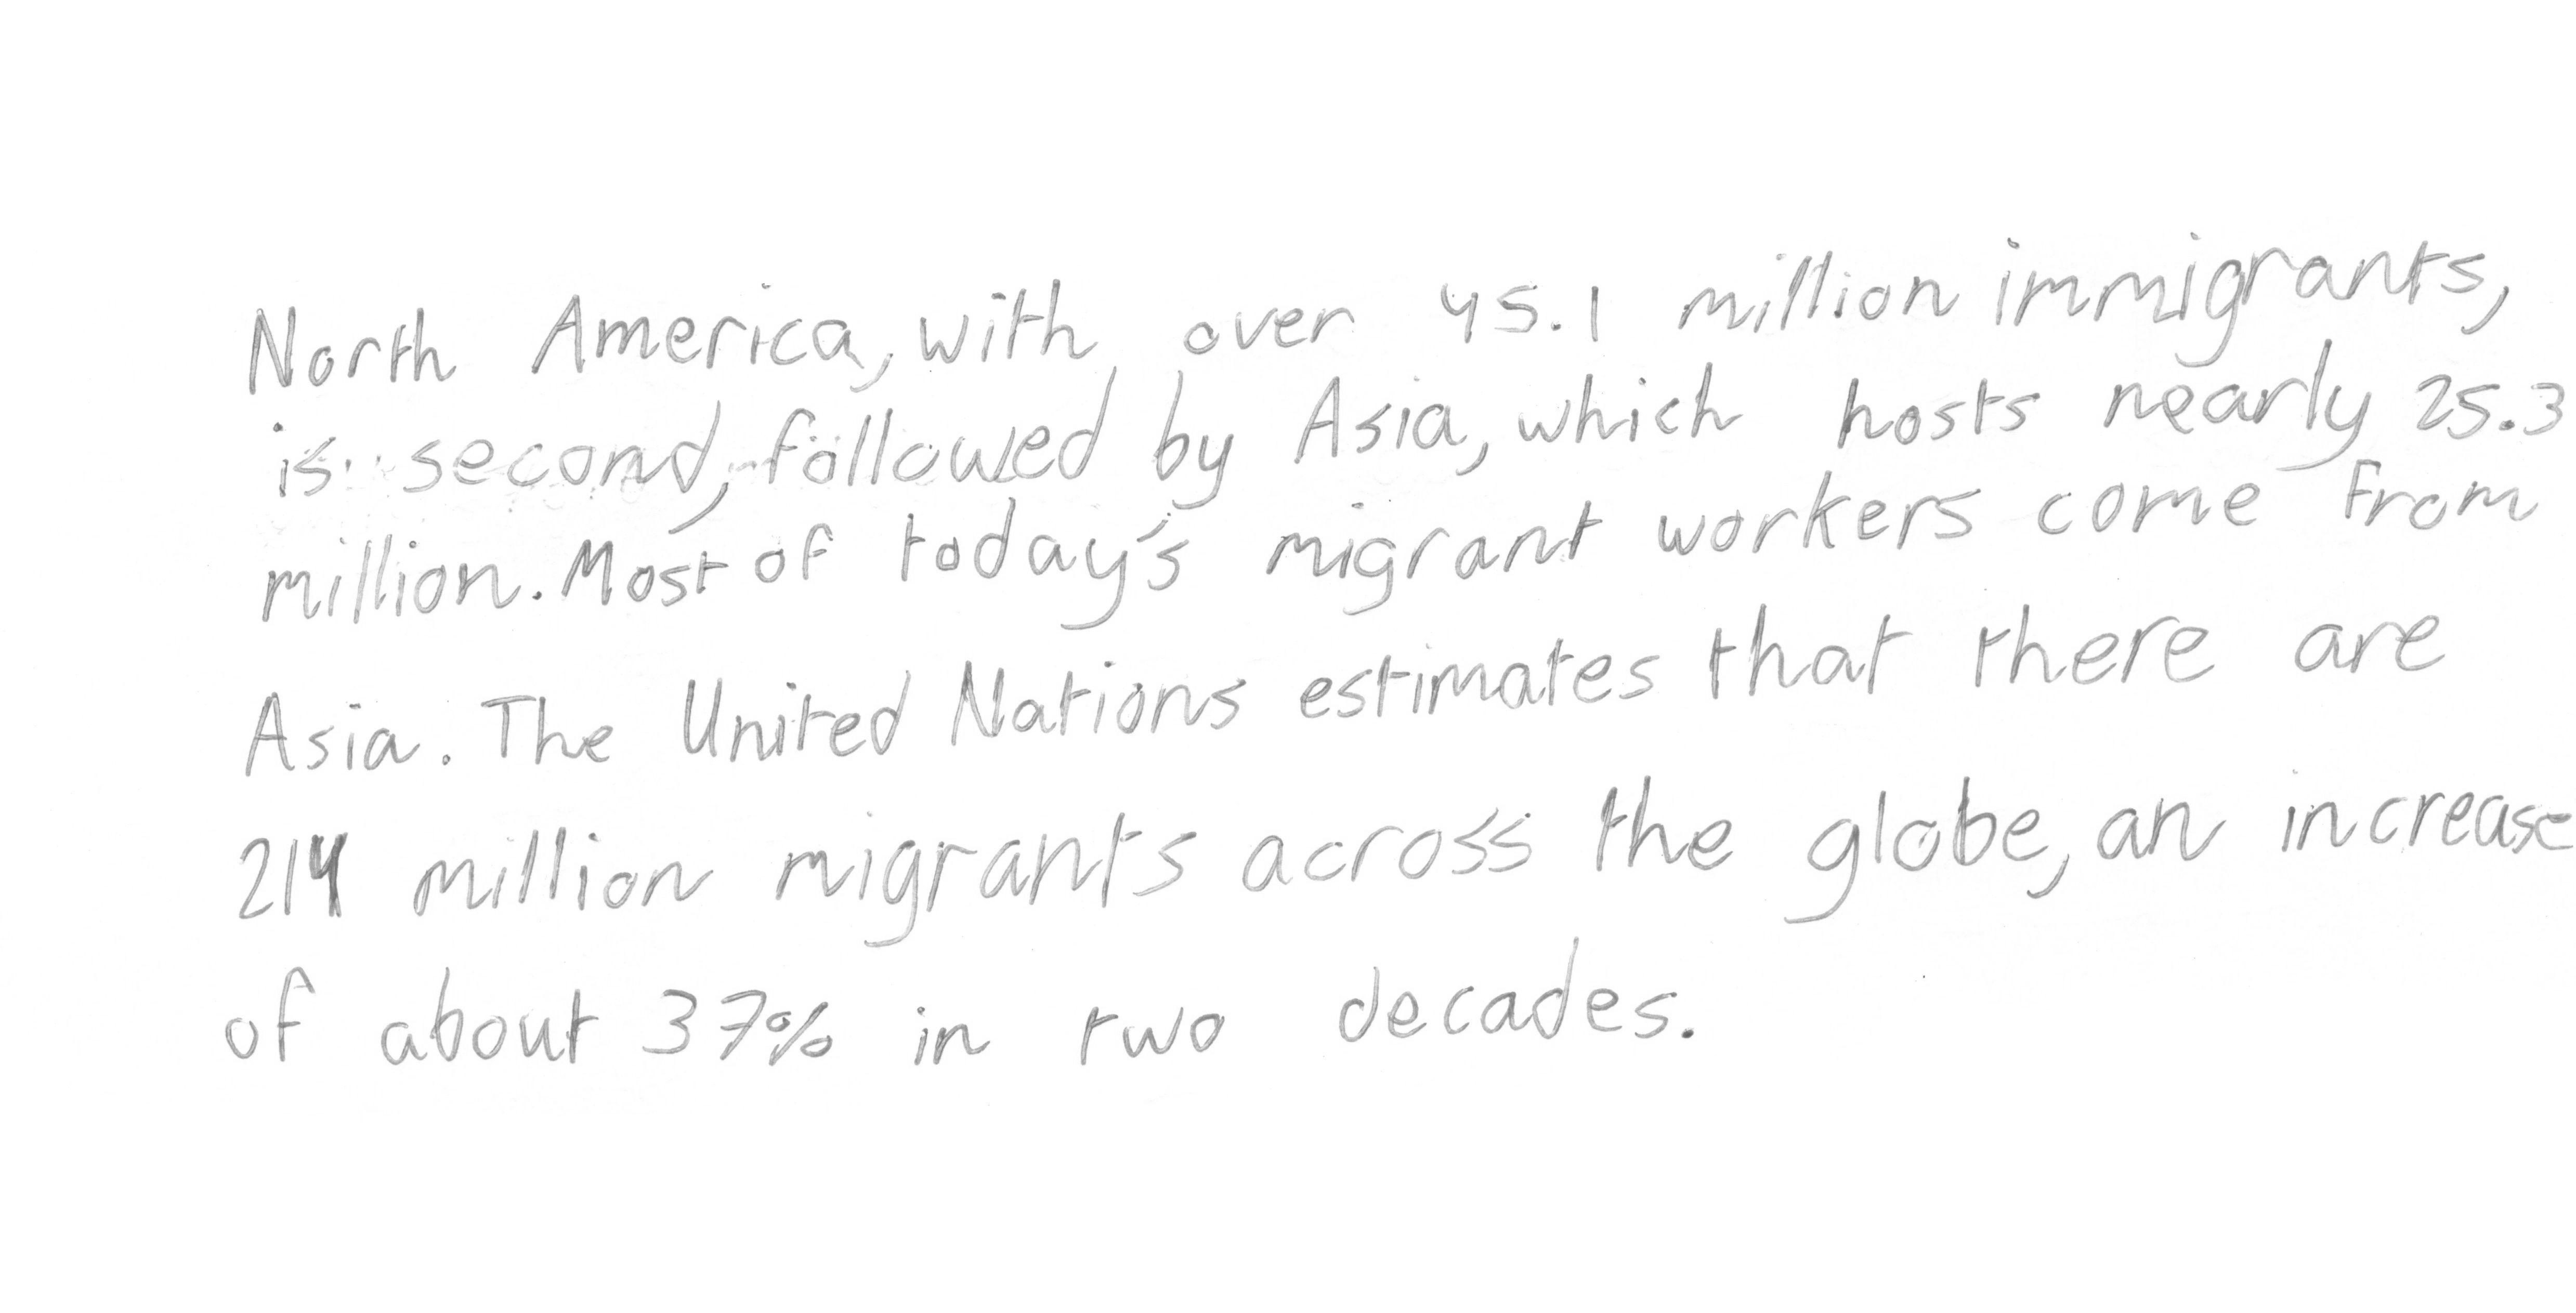 North America, with over 45.1 million immigrants,
is second, followed by Asia, which hosts nearly 25.3
million. Most of today's migrant workers come from
Asia. The United Nations estimates that there are
214 million migrants across the globe, an increase
of about 37% in two decades.